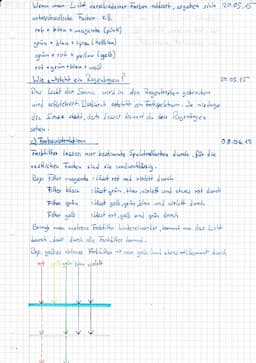 Wenn man Licht verschiedener Farben addiert, ergeben sich 20.05.15
unterschiedliche Farben. z.B.
rot + blau = magenta (pink)
grün + blau = cyan (hellblau)
grün + rot = yellow (gelb)
rot + grün + blau = weiß
Wie entsteht ein Regenbogen? 27.05.15
Das Licht der Sonne wird in den Regentropfen gebrochen
und reflektiert. Dadurch entsteht ein Farbspektrum. Je niedriger
die Sonne steht, desto besser kannst du den Regenbogen
sehen.
c) Farbsubtraktion 03.06.15
Farbfilter lassen nur bestimmte Spektralfarben durch, für die
restlichen Farben sind sie undurchlässig.
Bsp: Filter magenta: lässt rot und violett durch
Filter blau: lässt grün, blau, violett und etwas rot durch
Filter grün: lässt gelb, grün, blau und violett durch
Filter gelb: lässt rot, gelb und grün durch
Bringt man mehrere Farbfilter hintereinander, kommt nur das Licht
durch, das durch alle Farbfilter kommt.
Bsp. gelbes blaues Farbfilter → nur grün (und etwas rot) kommt durch
rot gelb grün blau violett